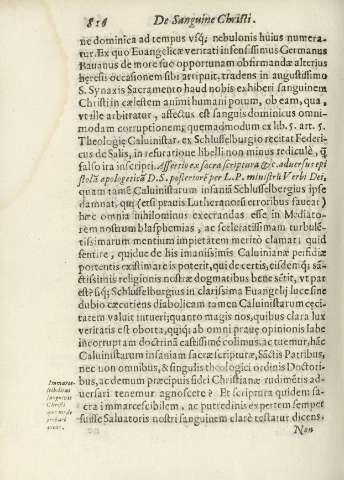 816 De Sanguine Christi.
ne dominica ad tempus vsq; nebulonis huius numera-
tur. Ex quo Euangelicæ veritati infensissimus Germanus
Bauanus de more suo opportunam obfirmandæ alterius
heresis occasionem sibi arripuit, tradens in augustissimo
S. Synaxis Sacramento haud nobis exhiberi sanguinem
Christi in cælestem animi humani potum, ob eam, qua,
vt ille arbitratur, affectus est sanguis dominicus omni-
modam corruptionem; quemadmodum ex lib. 5. art. 5.
Theologię Caluinistar. ex Schlusselburgio recitat Federi-
cus de Salis, in refutatione libelli non minus rediculè, q̃
falso ita inscripti, Assertio ex sacra scriptura &c. aduersus epi
stolã apologeticã D. S. posteriorẽ per L. P. ministrũ Verbi Dei,
quam tamẽ Caluinistarum insaniã Schlusselbergius ipse
damnat, qui (etsi prauis Lutheranorũ erroribus faueat)
hæc omnia nihilominus execrandas esse in Mediato-
rem nostrum blasphemias, ac sceleratissimam turbulẽ-
tissimarum mentium impietatem meritò clamat: quid
sentire, quidue de his imanissimis Caluinianæ perfidiæ
portentis existimare is poterit, qui de certis, eisdemq; sã-
ctissimis religionis nostræ dogmatibus benè sẽtit, vt par
est? siq; Schlusselburgius in clarissima Euangelij luce sine
dubio cæcutiens diabolicam tamen Caluinistarum cęci-
tatem valuit intueri; quanto magis nos, quibus clara lux
veritatis est oborta, quiq; ab omni prauę opinionis labe
incorruptam doctrinã castissimè colimus, ac tuemur, hãc
Caluinistarum insaniam sacræ scripturæ, Sãctis Patribus,
nec non omnibus, & singulis theologici ordinis Doctori-
bus, ac demum præcipuis fidei Christianæ rudimẽtis ad-
uersari tenemur agnoscere? Et scriptura quidem sa-
cra immarcescibilem, ac putredinis expertem semper
fuisse Saluatoris nostri sanguinem clarè testatur dicens.
Immarce-
scibilem
sanguinẽ
Christi
Non